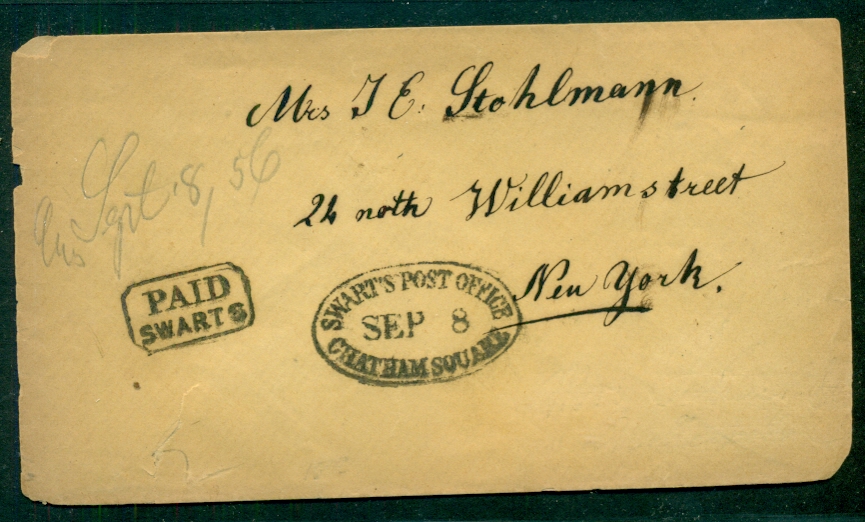 Mrs J E. Stohlmann.
24 noth Williamstreet
New York.
Ans Sept. 8, 56
PAID
SWARTS
SWART'S POST OFFICE
SEP 8
CHATHAM SQUARE